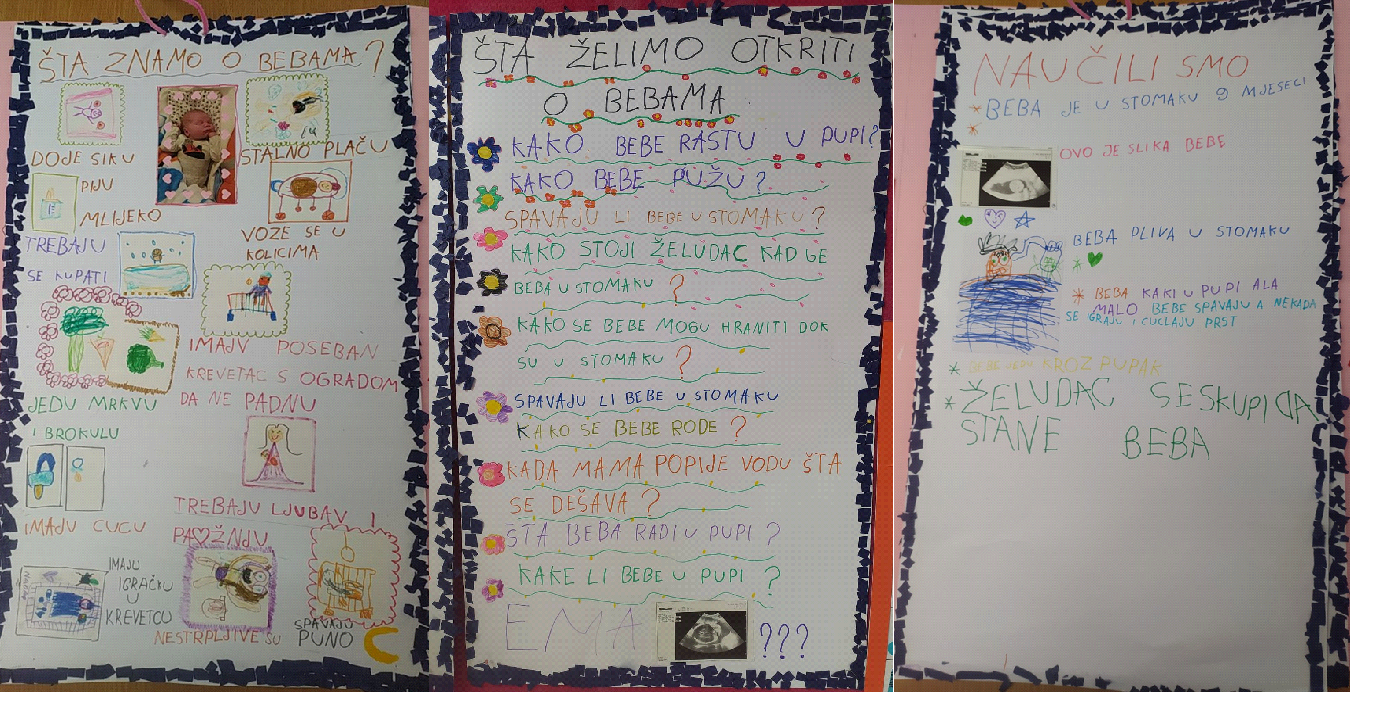 ŠTA ZNAMO O BEBAMA?
DOJE SIKU
STALNO PLAČU
PIJU
MLIJEKO
VOZE SE U
KOLICIMA
TREBAJU
SE KUPATI
IMAJU POSEBAN
KREVETAC S OGRADOM
DA NE PADNU
JEDU MRKVU
I BROKULU
TREBAJU LJUBAV I
PAŽNJU
IMAJU CUCU
IMAJU
IGRAČKU
U
KREVETCU
NESTRPLJIVE SU
SPAVAJU
PUNO
ŠTA ŽELIMO OTKRITI
O BEBAMA
KAKO BEBE RASTU U PUPI?
KAKO BEBE PUŽU?
SPAVAJU LI BEBE U STOMAKU?
KAKO STOJI ŽELUDAC KAD GE
BEBA U STOMAKU ?
KAKO SE BEBE MOGU HRANITI DOK
SU U STOMAKU ?
SPAVAJU LI BEBE U STOMAKU
KAKO SE BEBE RODE ?
KADA MAMA POPIJE VODU ŠTA
SE DEŠAVA ?
ŠTA BEBA RADI U PUPI ?
KAKE LI BEBE U PUPI ?
EMA ???
NAUČILI SMO
* BEBA JE U STOMAKU 9 MJESECI
*
OVO JE SLIKA BEBE
BEBA PLIVA U STOMAKU
*
* BEBA KAKI U PUPI ALA
MALO BEBE SPAVAJU A NEKADA
SE GRAJU I CUCLAJU PRST
* KROZ PUPAK
* ŽELUDAC SE SKUPI DA
STANE BEBA